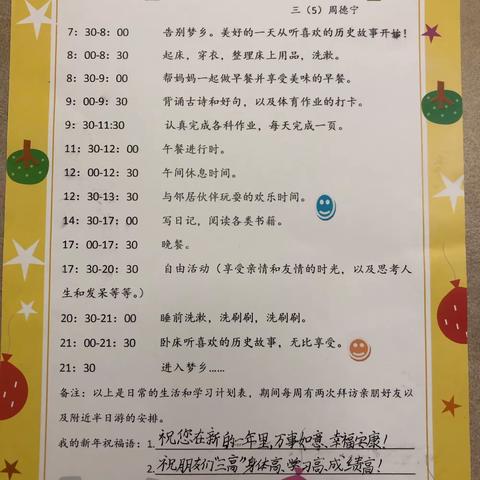 三（5）周德宁
7：30-8：00 告别梦乡。美好的一天从听喜欢的历史故事开始！
8：00-8：30 起床，穿衣，整理床上用品，洗漱。
8：30-9：00 帮妈妈一起做早餐并享受美味的早餐。
9：00-9：30 背诵古诗和好句，以及体育作业的打卡。
9：30-11:30 认真完成各科作业，每天完成一页。
11：30-12：00 午餐进行时。
12：00-12：30 午间休息时间。
12：30-13:30 与邻居伙伴玩耍的欢乐时间。
14：30-17：00 写日记，阅读各类书籍。
17：00-17：30 晚餐。
17：30-20：30 自由活动（享受亲情和友情的时光，以及思考人
生和发呆等等。）
20：30-21：00 睡前洗漱，洗刷刷，洗刷刷。
21：00-21：30 卧床听喜欢的历史故事，无比享受。
21：30 进入梦乡……
备注：以上是日常的生活和学习计划表，期间每周有两次拜访亲朋好友以
及附近半日游的安排。
我的新年祝福语：1.祝您在新的一年里，万事如意、幸福安康！
2.祝朋友们“三高”身体高、学习高、成绩高！